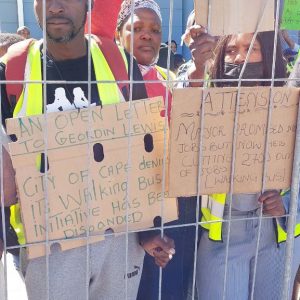 AN OPEN LETTER
TO GEORDIN LEWIS
CITY OF CAPE denies
ITS Walking Bus
INITIATIVE HAS BEEN
DISBANDED
ATTENSION
MAYOR PROMISED
JOBS BUT NOW HE IS
CUTTING
OF JOBS
WALKING BUS